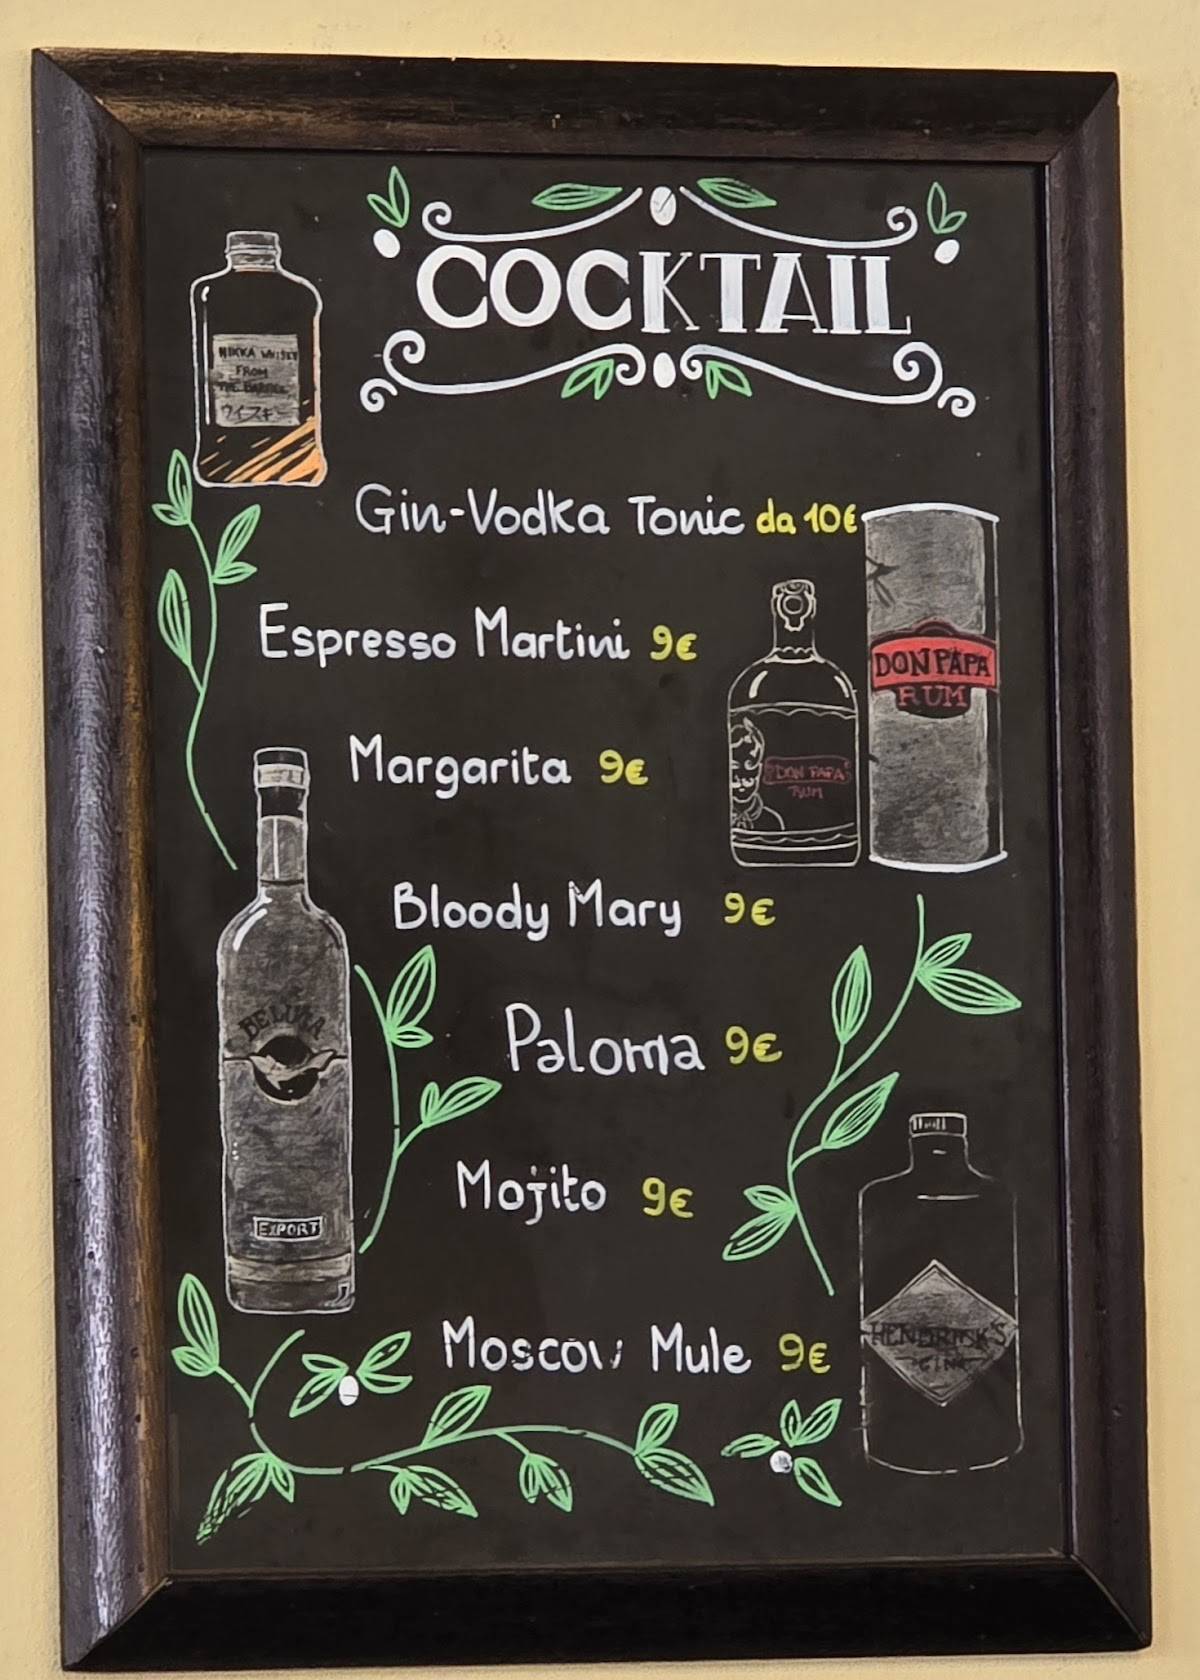 COCKTAIL
NIKKA WHISKY
FROM
THE BARREL
ウイスキー
Gin-Vodka Tonic da 10€
Espresso Martini 9€
DON PAPA
RUM
DON PAPA
RUM
Margarita 9€
Bloody Mary 9€
BELUGA
EXPORT
Paloma 9€
Mojito 9€
Moscow Mule 9€
HENDRICK'S
GIN